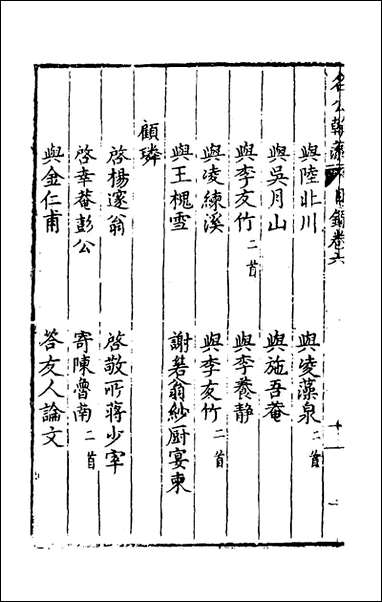 名公翰藻目錄卷六
與陸北川 與凌藻泉二首
與吳月山 與施吾菴
與李友竹二首 與李養靜
與凌練溪 與李友竹二首
與王槐雪 謝箬翁紗厨宴柬
顧璘
啓楊邃翁 啓敬所蔣少宰
啓幸菴彭公 寄陳魯南二首
與金仁甫 答友人論文